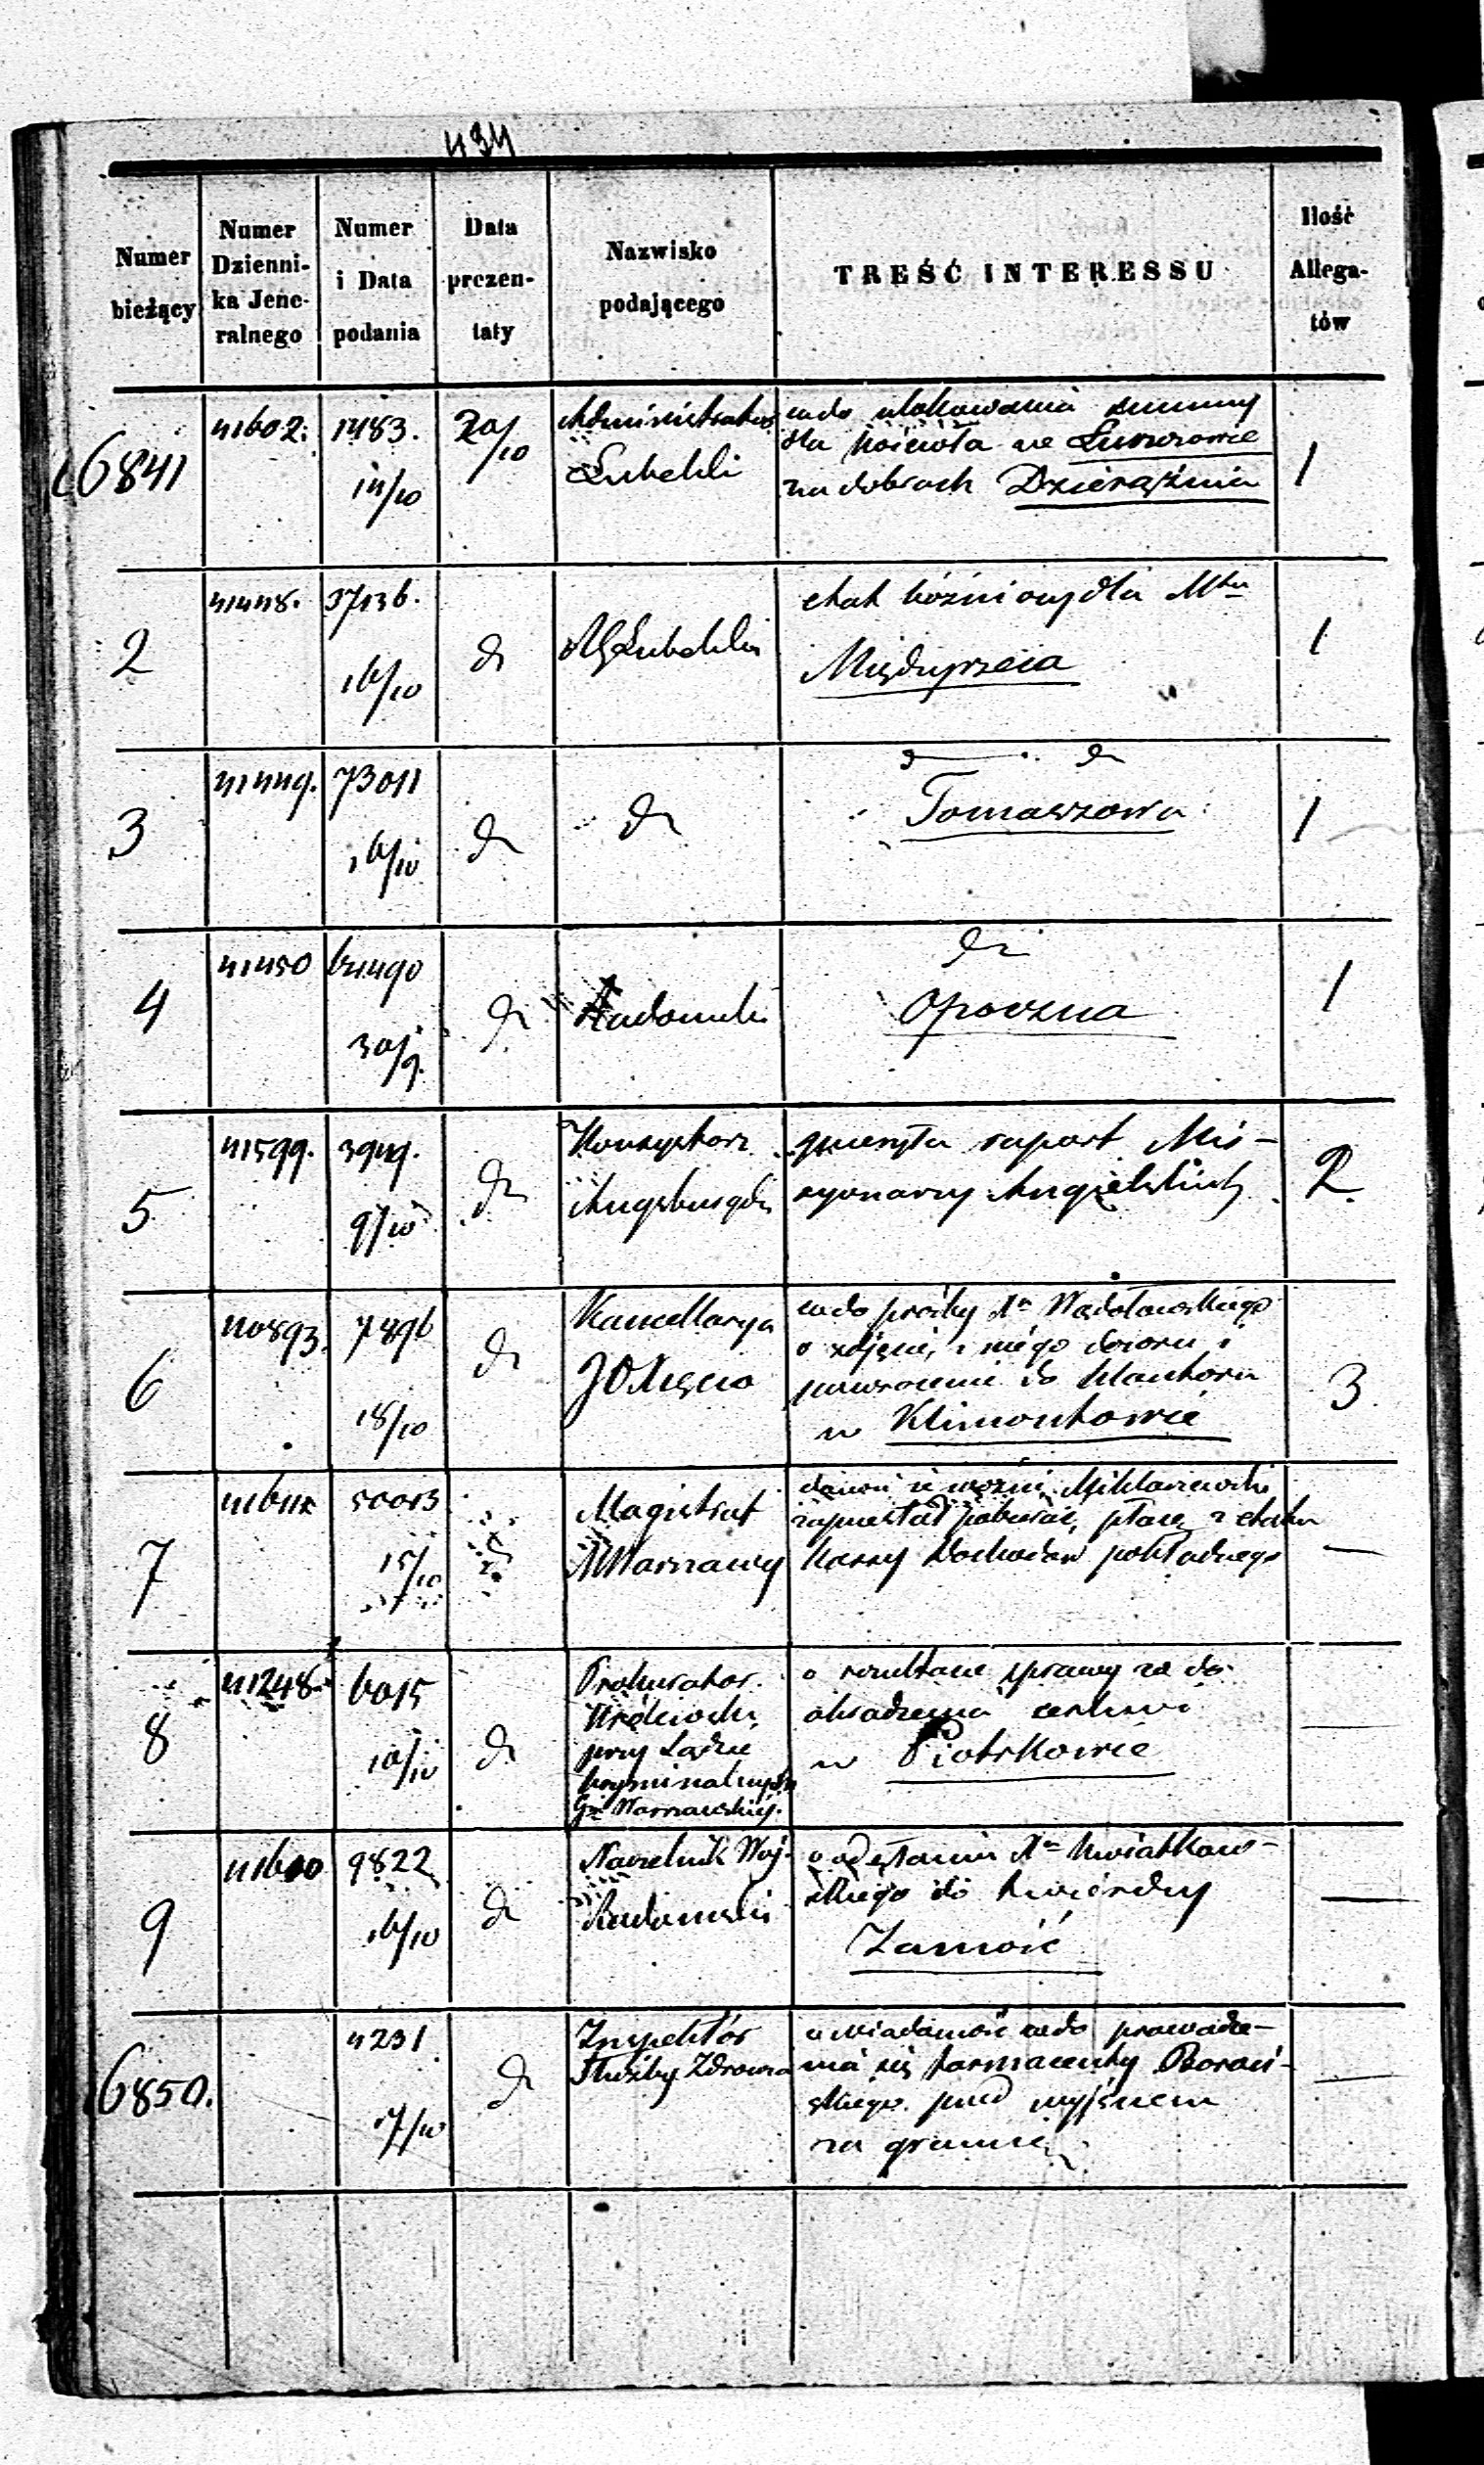 434
Numer bieżący
Numer Dzienni-ka Jene-ralnego
Numer i Data podania
Data prezen-taty
Nazwisko podającego
TREŚĆ INTERESSU
Ilość Allega-tów
6841
41602.
1483.
14/10
20/10
Administrator
Lubelski
wzdo ulokowania summy
dla kościoła we
na dobrach Dzierążnia
1
2
41448.
37136.
16/10
do
RG Lubelski
etat bóźniczy dla Mta
Międzyrzecza
1
3
41449.
73011
16/10
do
do
do
Tomaszowa
1
4
41450
62490
30/9.
do
Radomski
do
Opoczna
1
5
41599.
3949.
9/10
do
Konsystorz
Augsburgski
raport Mis-
syonarzy Angielskich
2.
6
40893.
7896
18/10
do
Kancellarya
JO Xięcia
wzdo prośby Xa Wądołowskiego
o zdjęcie z niego dozoru i
powrócenie do klasztoru
w Klimontowie
3
7
50013
15/10
do
Magistrat
M Warszawy
Miklaszewski
zaprzestał pobierać płacę z etatu
kassy dochodów pokładnego
—
8
41248.
6015
10/10
do
Prokurator
Królewski
przy Sądzie
kryminalnym
Gii Warszawskiej.
o rezultacie sprawy wzdo
okradzenia cerkwi
w Piotrkowie
—
9
41600
9822
16/10
do
Naczelnik Woj.
Radomski
o odesłaniu Xa Kwiatkow-
skiego do twierdzy
Zamość
—
6850.
4231
17/10
do
Inspektór
Służby Zdrowia
o wiadomość wzdo prowadze-
nia się farmaceuty
skiego przed wyjściem
za granicę
—